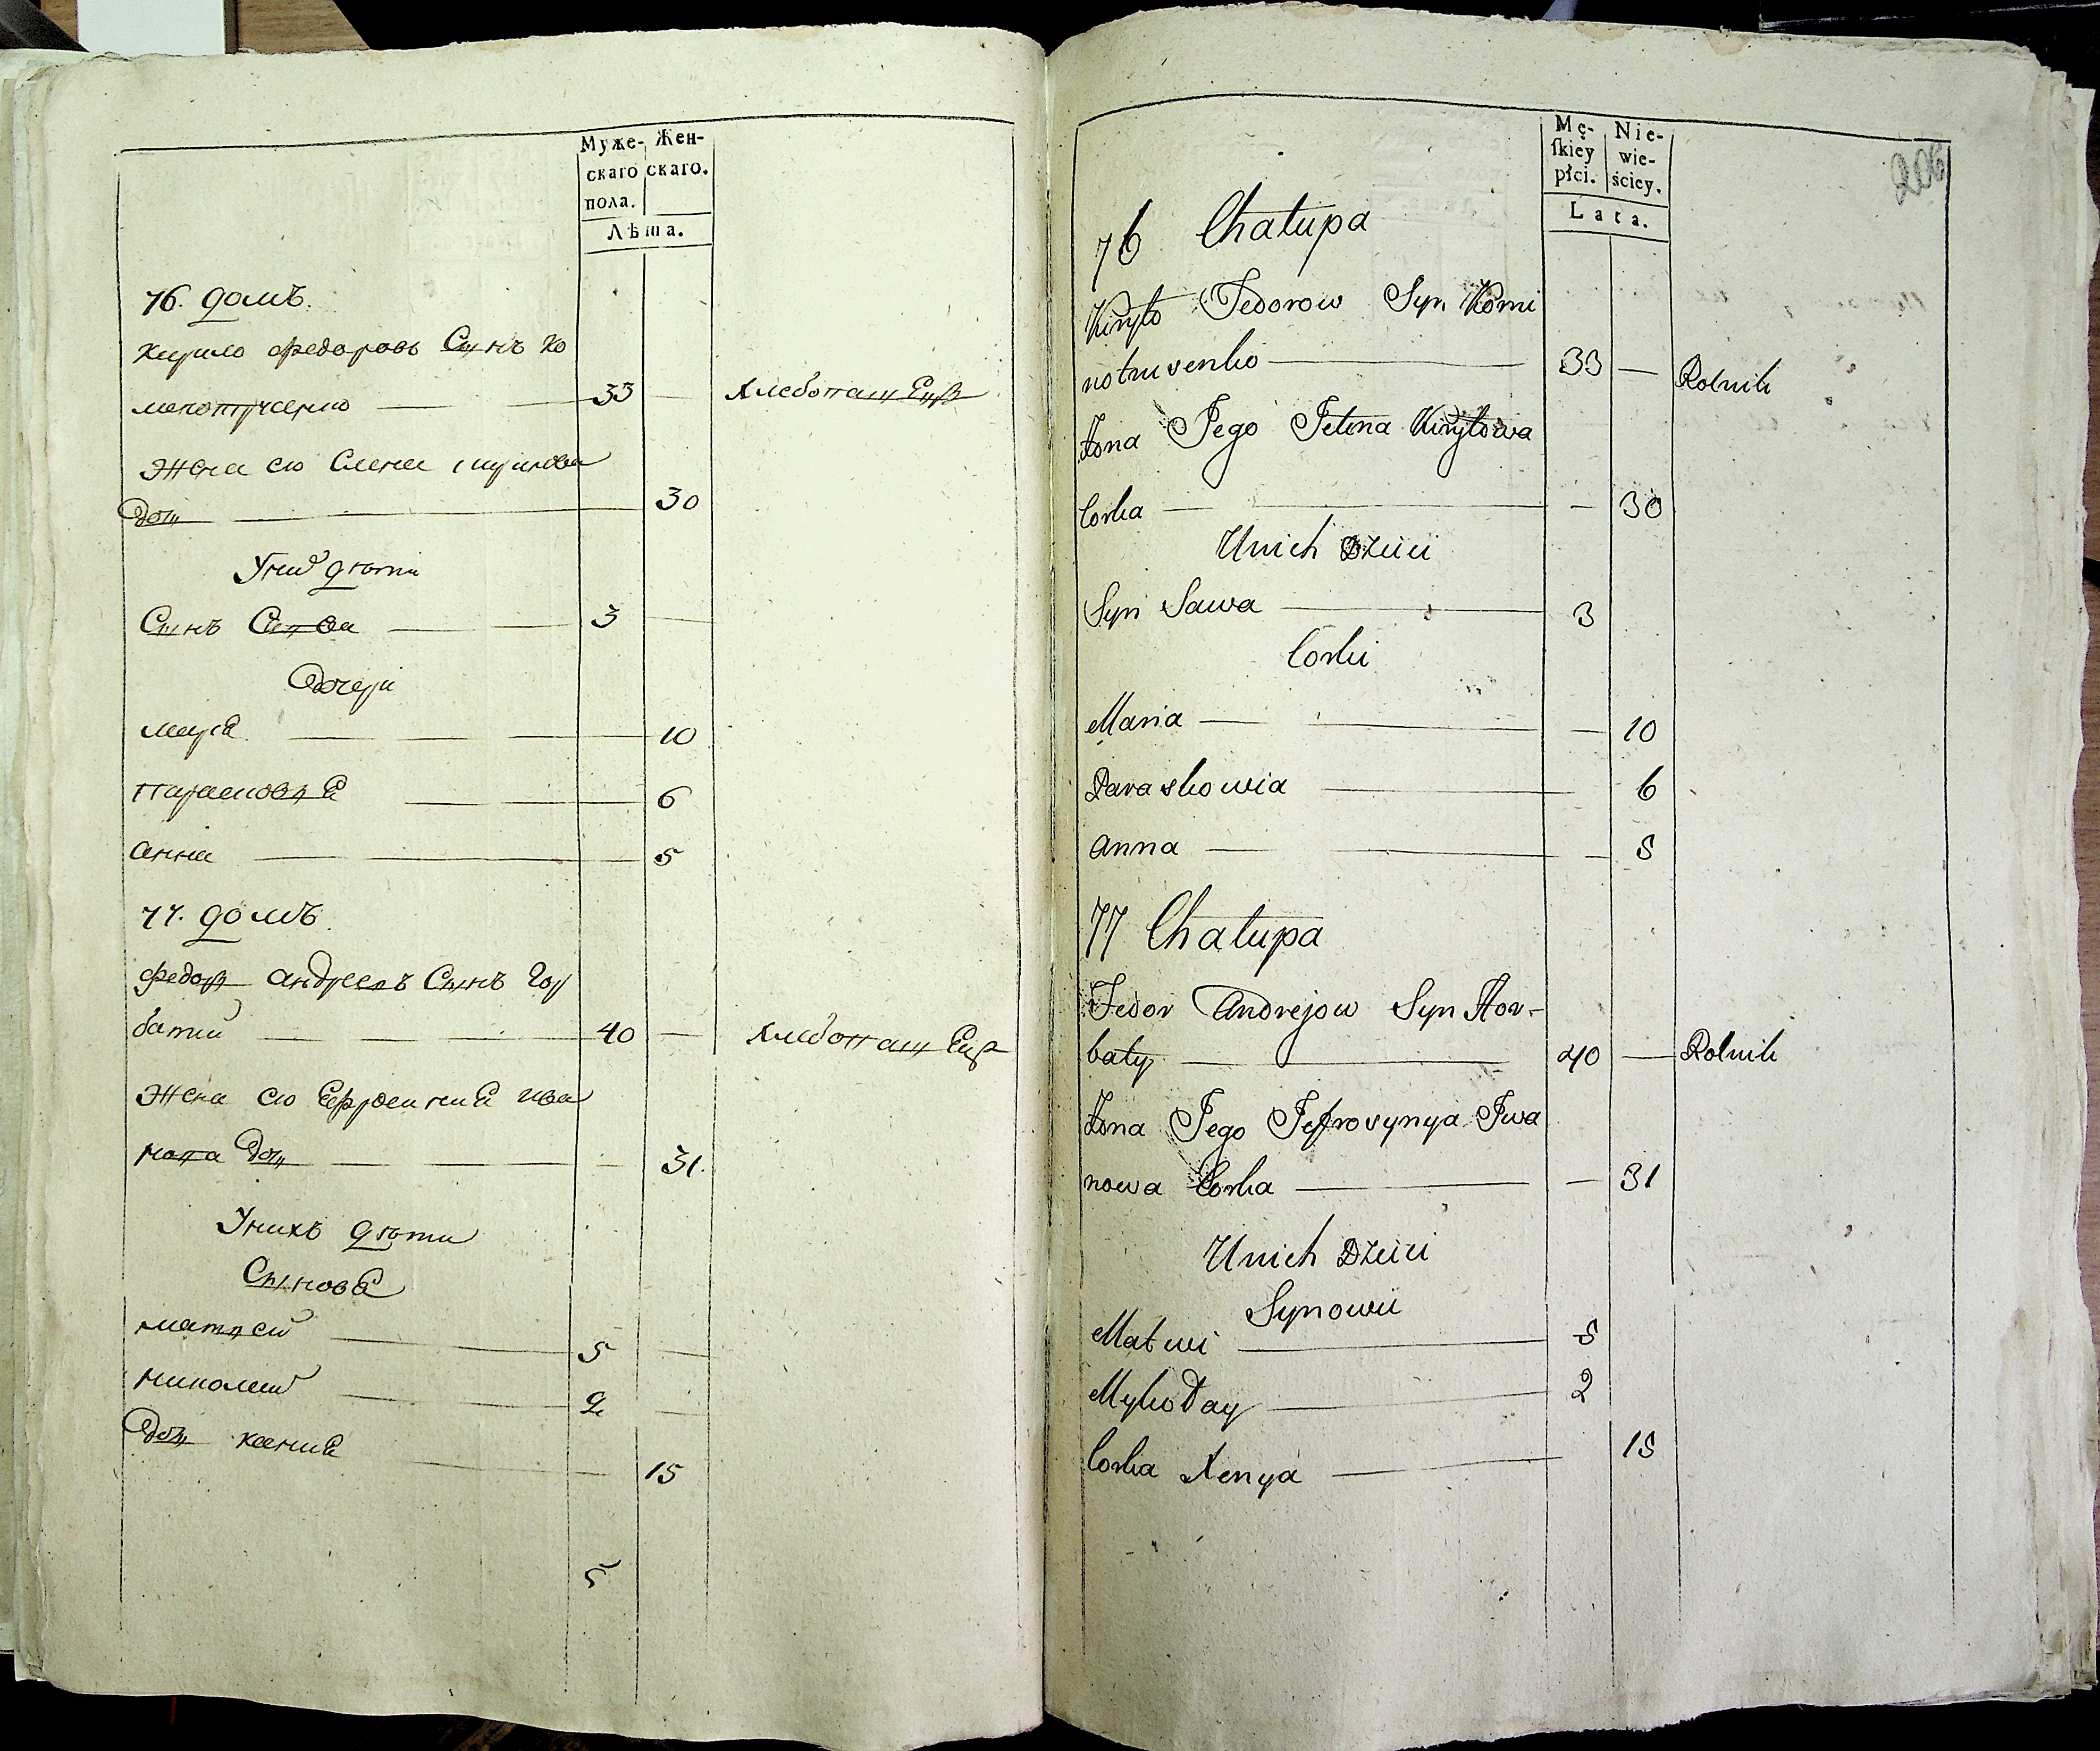 Муже-
скаго
пола.
Жен-
скаго.
Лѣта.
76. домъ.
Кирило Федоровъ Сынъ Ко
менотрусенко 33
Хлебопашецъ
Жена ею Елена Кирилова
Доч 30
У них дѣти
Сынъ Сава 3
Дочери
Мария 10
Парасковия 6
Анна 5
77. домъ.
Федор Андреевъ Сынъ Гор
батий 40
Хлебопашецъ
Жена ею Ефросиния Ива
нова Доч 31.
У нихъ дѣти
Синовя
Матвей 5
Николай 2
Доч Ксения 15
5
Mę-
skiey
płci.
Nie-
wie-
ściey.
Lata.
206
76 Chałupa
Kiryło Fedorow Syn Komi
notrusenko 33
Rolnik
Żona Jego Jelena Kiryłowa
Corka 30
Unich Dzieci
Syn Sawa 3
Corki
Maria 10
Paraskowia 6
Anna 5
77 Chałupa
Fedor Andrejow Syn Hor-
baty 40 Rolnik
Żona Jego Jefrosynya Iwa
nowa Corka 31
Unich Dzieci
Synowie
Matwi 5
Mykołay 2
Corka Xenya 15